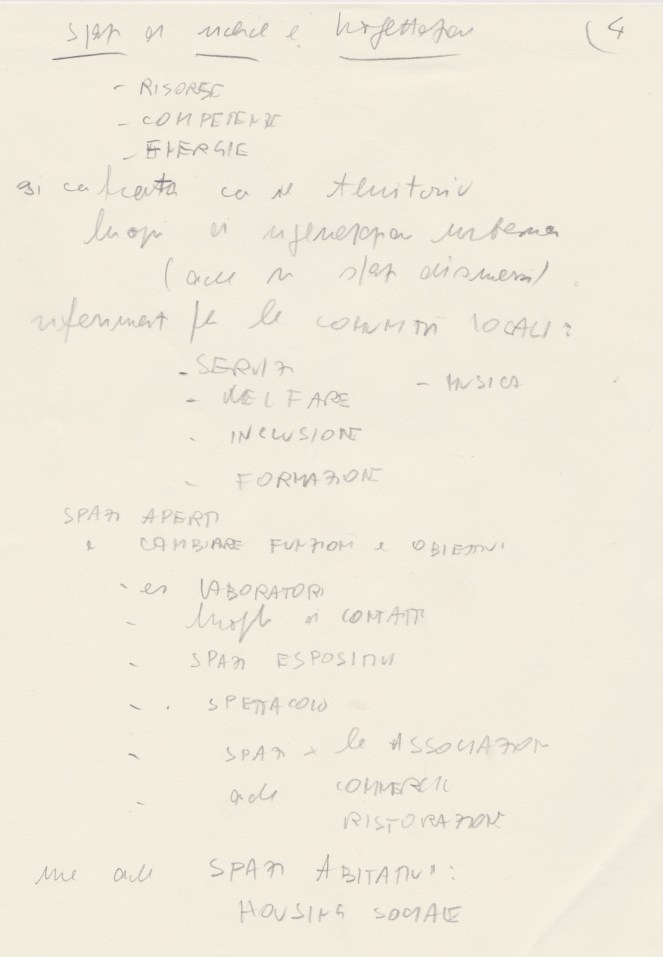 spazi di ricerca e progettazione (4
- RISORSE
- COMPETENZE
- ENERGIE
si confronta con il territorio
luoghi di rigenerazione urbana
(anche in spazi dismessi)
riferimenti per le COMUNITÀ LOCALI:
- SERVIZI
- WELFARE - MUSICA
- INCLUSIONE
- FORMAZIONE
SPAZI APERTI
CAMBIARE FUNZIONI e OBIETTIVI
- es LABORATORI
- luoghi di CONTATTI
- SPAZI ESPOSITIVI
- SPETTACOLO
- SPAZI x le ASSOCIAZIONI
- anche COMMERCIO
RISTORAZIONE
ma anche SPAZI ABITATIVI:
HOUSING SOCIALE